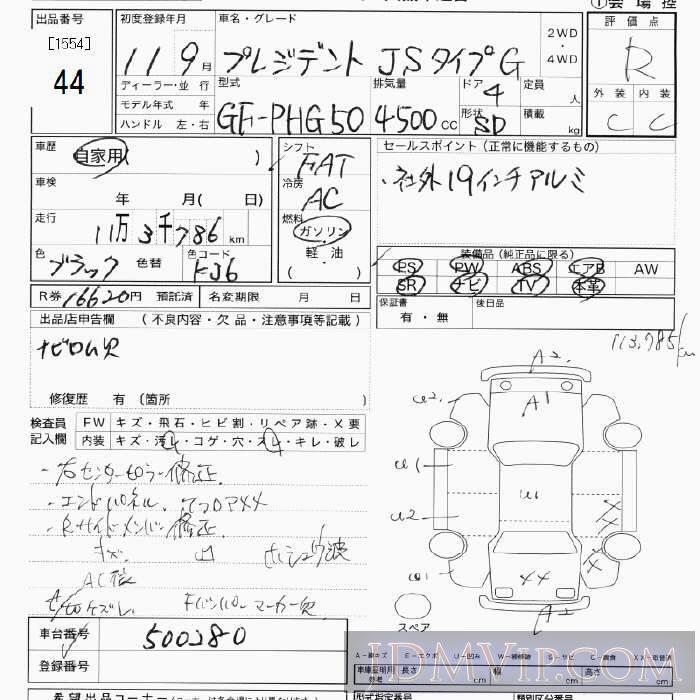 出品番号
[1554]
44
初度登録年月
11 9月
車名・グレード
プレジデント JSタイプG
2WD
・
4WD
①会場控
評価点
R
外装 内装
C C
ディーラー・並行
モデル年式 年
ハンドル 左・右
型式
GF-PHG50
排気量
4500cc
ドア
4
形状
SD
定員
人
積載
kg
車歴
自家用( )
車検
年 月( 日)
走行
11万3千786km
色
ブラック
色替
色コード
KJ6
シフト
FAT
冷房
AC
燃料
ガソリン
軽・油
( )
セールスポイント(正常に機能するもの)
・社外19インチアルミ
装備品(純正品に限る)
PS PW ABS エアB AW
SR ナビ TV 本革
R券 16620円 預託済
名変期限 月 日
保証書
有・無
後日品
出品店申告欄 (不良内容・欠品・注意事項等記載)
ナビロム欠
修復歴 有 (箇所 )
113,785km
検査員
記入欄
FW キズ・飛石・ヒビ割・リペア跡・X要
内装 キズ・汚レ・コゲ・穴・スレ・キレ・破レ
・右センターピラー修正
・エンドパネル、リアフロアXX
・Rサイドメンバー修正
キズ 凹 ホシュウ波
AC
Fバンパーマーカー欠
A2
A1
U2
U1
U2
U1
U1
XX
XX
XX
A2
スペア
車台番号
500280
登録番号
A-線キズ E-エクボ U-凹ミ W-補修跡 S-サビ C-腐食 XX-取替済
車庫証明用 参考 長さ cm 幅 cm 高さ cm
JDMVIP.COM
希望出品コーナー
型式指定番号
類別区分番号